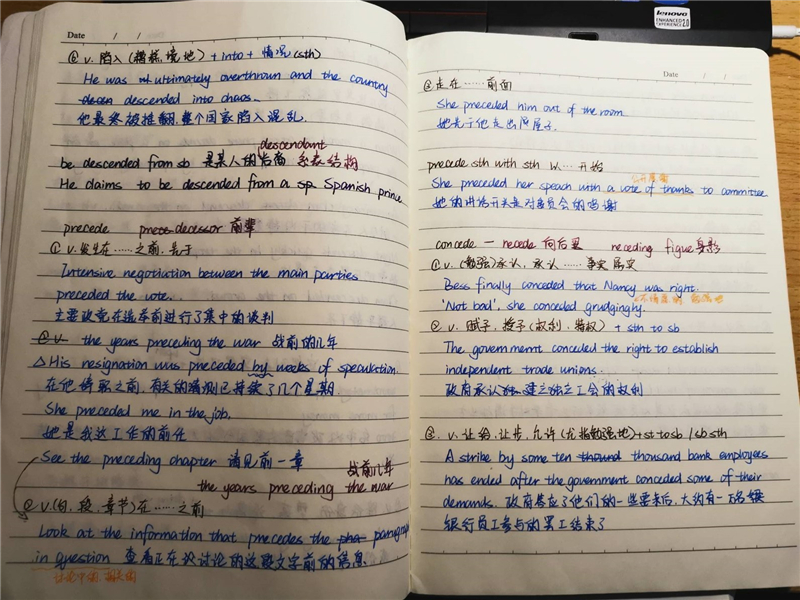 Date / /
② v. 陷入 (糟糕境地) + into + 情况 (sth)
He was ultimately overthrown and the country
descended into chaos.
他最终被推翻,整个国家陷入混乱.
descendant
be descended from sb 是某人的后裔 亲衣结构
He claims to be descended from a sp. Spanish prince
precede predecessor 前辈
① v. 发生在……之前,先于
Intensive negotiation between the main parties
preceded the vote.
主要政党在选举前进行了集中的谈判
② v. the years preceding the war 战前的几年
△ His resignation was preceded by weeks of speculation.
在他辞职之前,有关的猜测已持续了几个星期.
She preceded me in the job.
她是我这工作的前任
See the preceding chapter 请见前一章
战前几年
the years preceding the war
② v. (句,段,章节) 在……之前
Look at the information that precedes the pha paragraph
in question 查看正在被讨论的这段文字前的信息.
lenovo
ENHANCED EXPERIENCE 2.0
Date / /
② 走在……前面
She preceded him out of the room
她先于他走出屋子.
precede sth with sth 以…开始
She preceded her speach with a vote of thanks to committee
她的讲话开头是对委员会的鸣谢
concede — recede 向后退 receding figue 身影
① v. (勉强)承认,承认……事实属实
Bess finally conceded that Nancy was right.
'Not bad', she conceded grudgingly.
② v. 赋予,授予 (权利,特权) + sth to sb
The governemnt conceded the right to establish
independent trade unions.
政府承认独建立独立工会的权利
③ v. 让给,让步,允许 (尤指勉强地) + st to sb / sb sth
A strike by some ten thound thousand bank employees
has ended after the government conceded some of their
demands. 政府答应了他们的一些要求后,大约有一万名
银行员工参与的罢工结束了